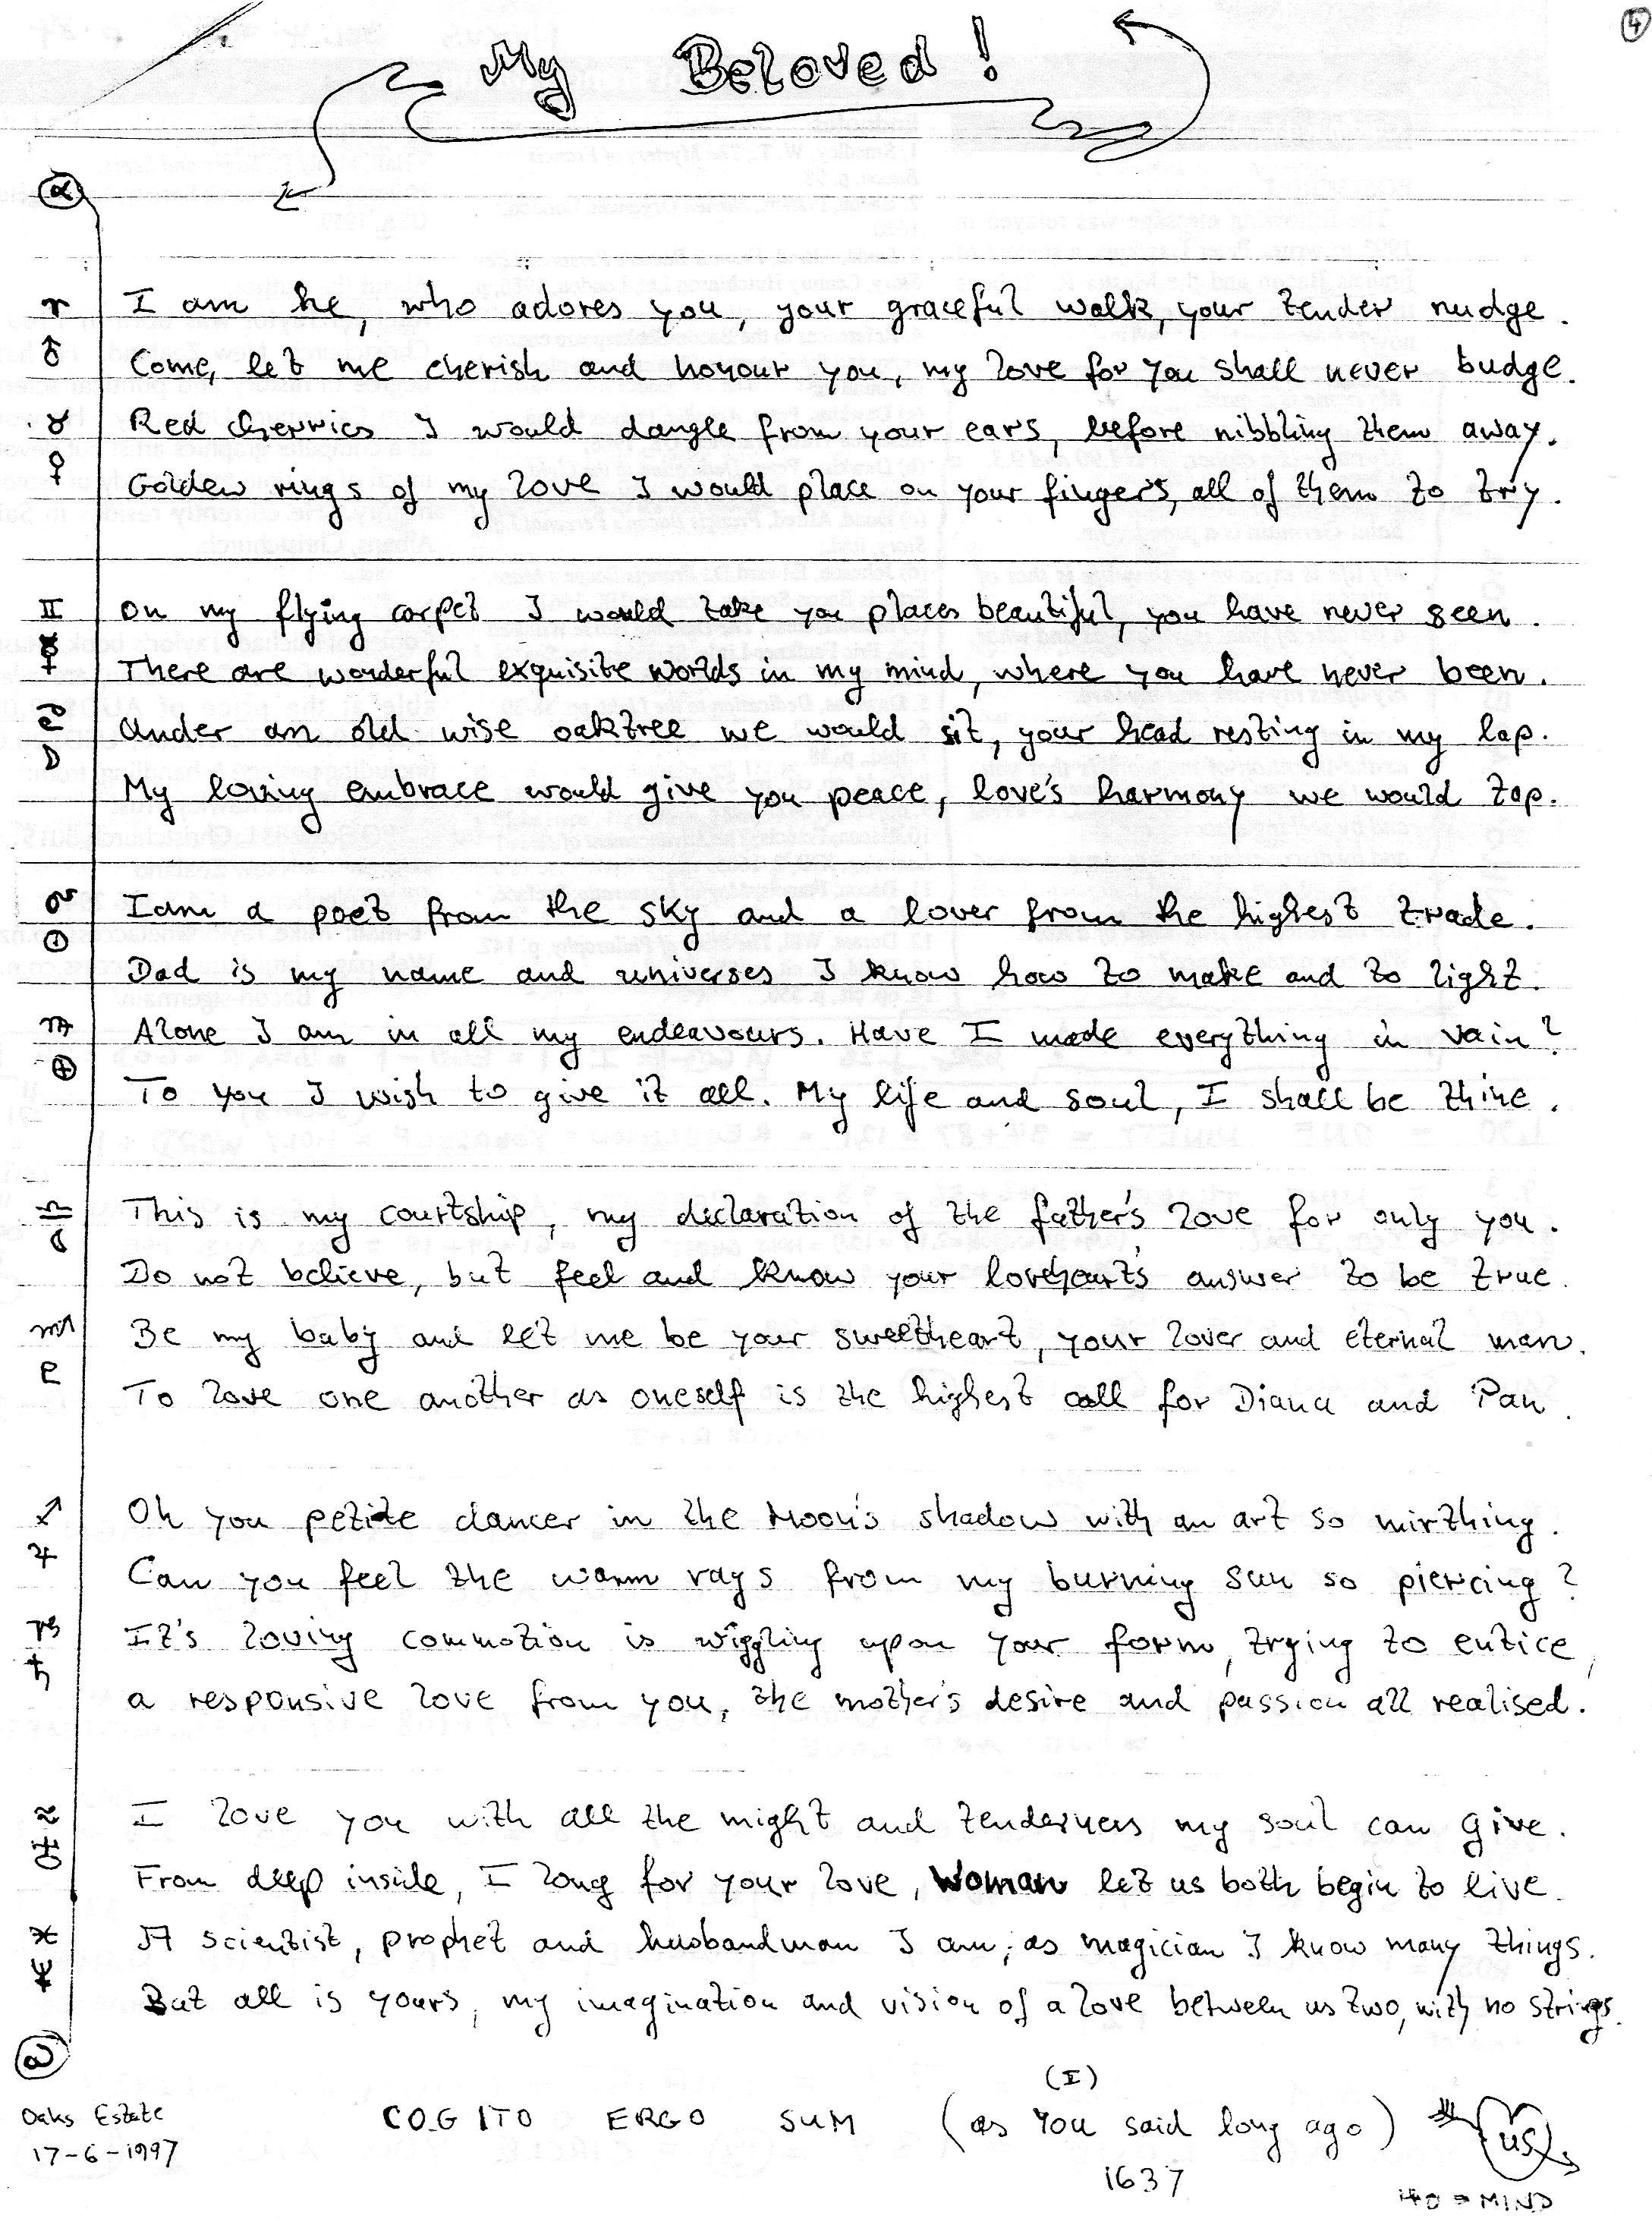 ④
My Beloved!
α
♈ I am he, who adores you, your graceful walk, your tender nudge.
♂ Come, let me cherish and honour you, my love for you shall never budge.
♉ Red cherries I would dangle from your ears, before nibbling them away.
♀ Golden rings of my love I would place on your fingers, all of them to try.
♊ On my flying carpet I would take you places beautiful, you have never seen.
☿ There are wonderful exquisite worlds in my mind, where you have never been.
♋ Under an old wise oaktree we would sit, your head resting in my lap.
☽ My loving embrace would give you peace, love's harmony we would tap.
♌ I am a poet from the sky and a lover from the highest trade.
☉ Dad is my name and universes I know how to make and to light.
♍ Alone I am in all my endeavours. Have I made everything in vain?
⊕ To you I wish to give it all. My life and soul, I shall be thine.
♎ This is my courtship, my declaration of the father's love for only you.
Do not believe, but feel and know your loveheart's answer to be true.
♏ Be my baby and let me be your sweetheart, your lover and eternal man.
♇ To love one another as oneself is the highest call for Diana and Pan.
♐ Oh you petite dancer in the Moon's shadow with an art so mirthing.
♃ Can you feel the warm rays from my burning sun so piercing?
♑ It's loving commotion is wiggling upon your form, trying to entice,
♄ a responsive love from you, the mother's desire and passion all realised.
♒ I love you with all the might and tenderness my soul can give.
♅ From deep inside, I long for your love, Woman let us both begin to live.
♓ A scientist, prophet and husbandman I am; as magician I know many things.
♆ But all is yours, my imagination and vision of a love between us two, with no strings.
ω
(I)
Oaks Estate COGITO ERGO SUM (as You said long ago) US
17-6-1997 1637
40 = MIND